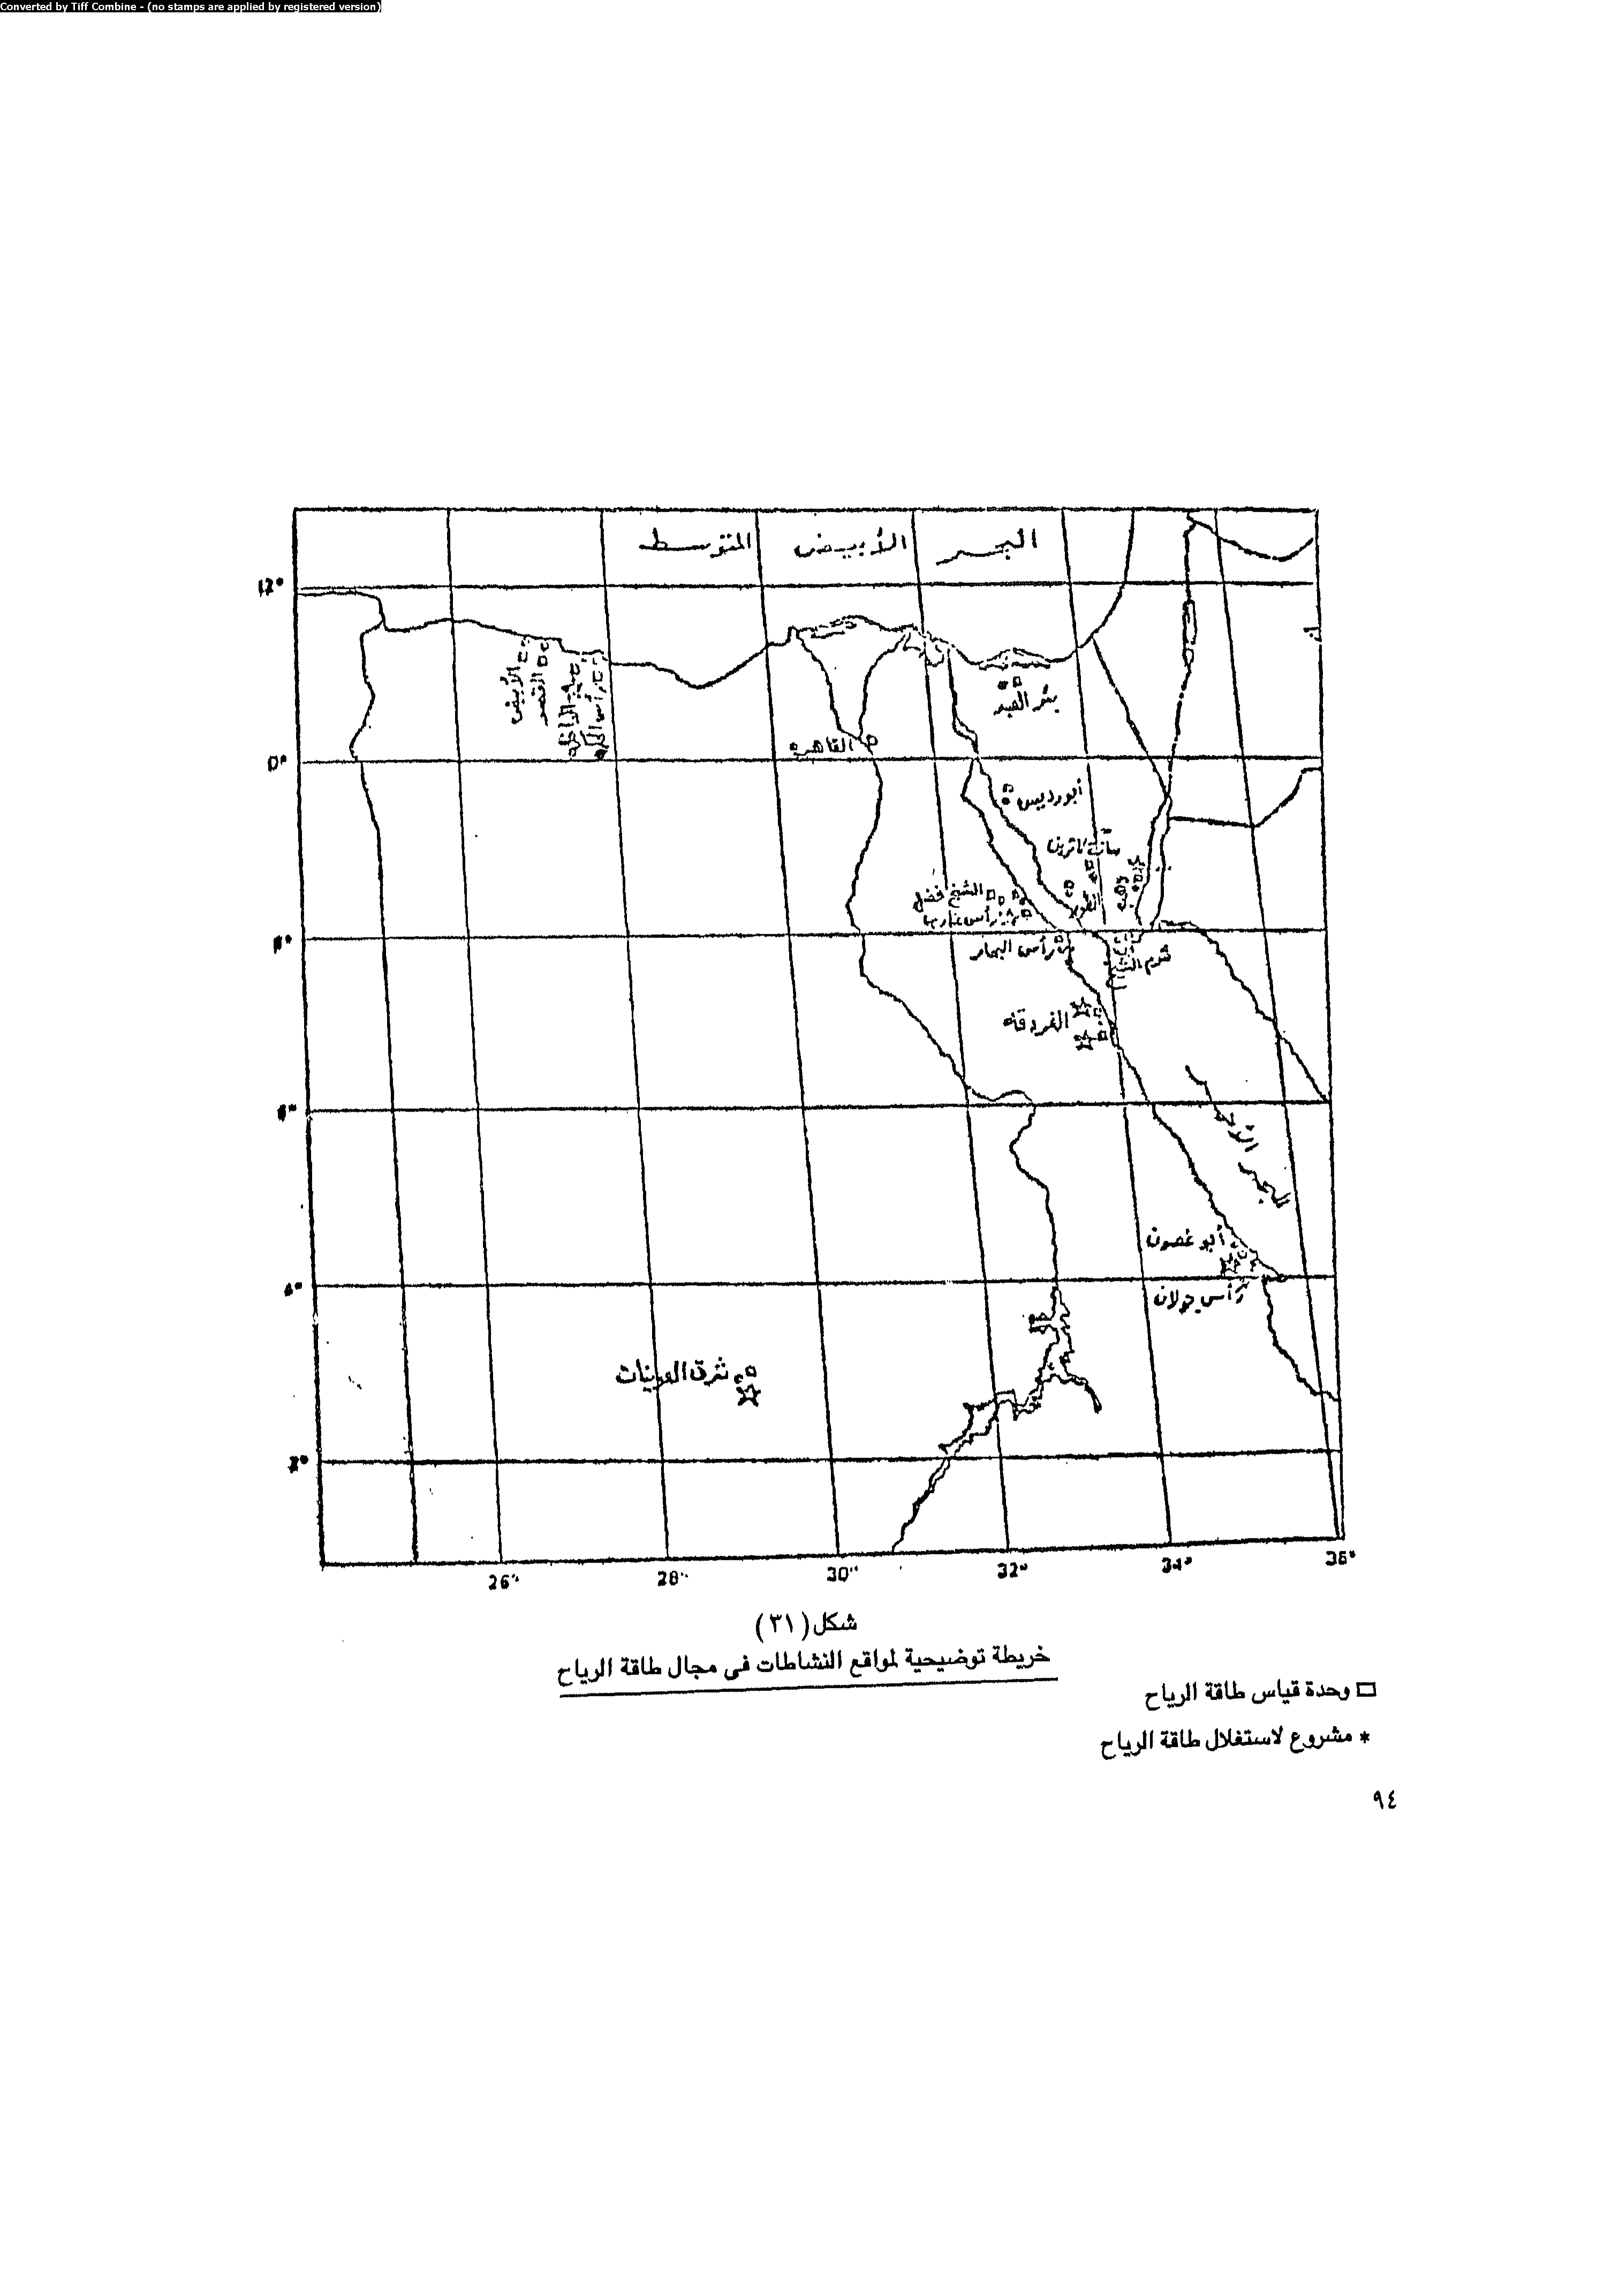 Converted by Tiff Combine - (no stamps are applied by registered version)
البحر الأبيض المتوسط
12°
بئر العبد
الأبيض
القصر
القاهره
0°
أبورديس
سانت كاترين
الشيخ فضل
رأس غارب
الطور
رأس البهار
شرم الشيخ
الغردقة
البحر
أبو غصون
شرق العوينات
26° 28° 30° 32° 34° 36°
شكل (٣١)
خريطة توضيحية لمواقع النشاطات فى مجال طاقة الرياح
□ وحدة قياس طاقة الرياح
* مشروع لاستغلال طاقة الرياح
٩٤